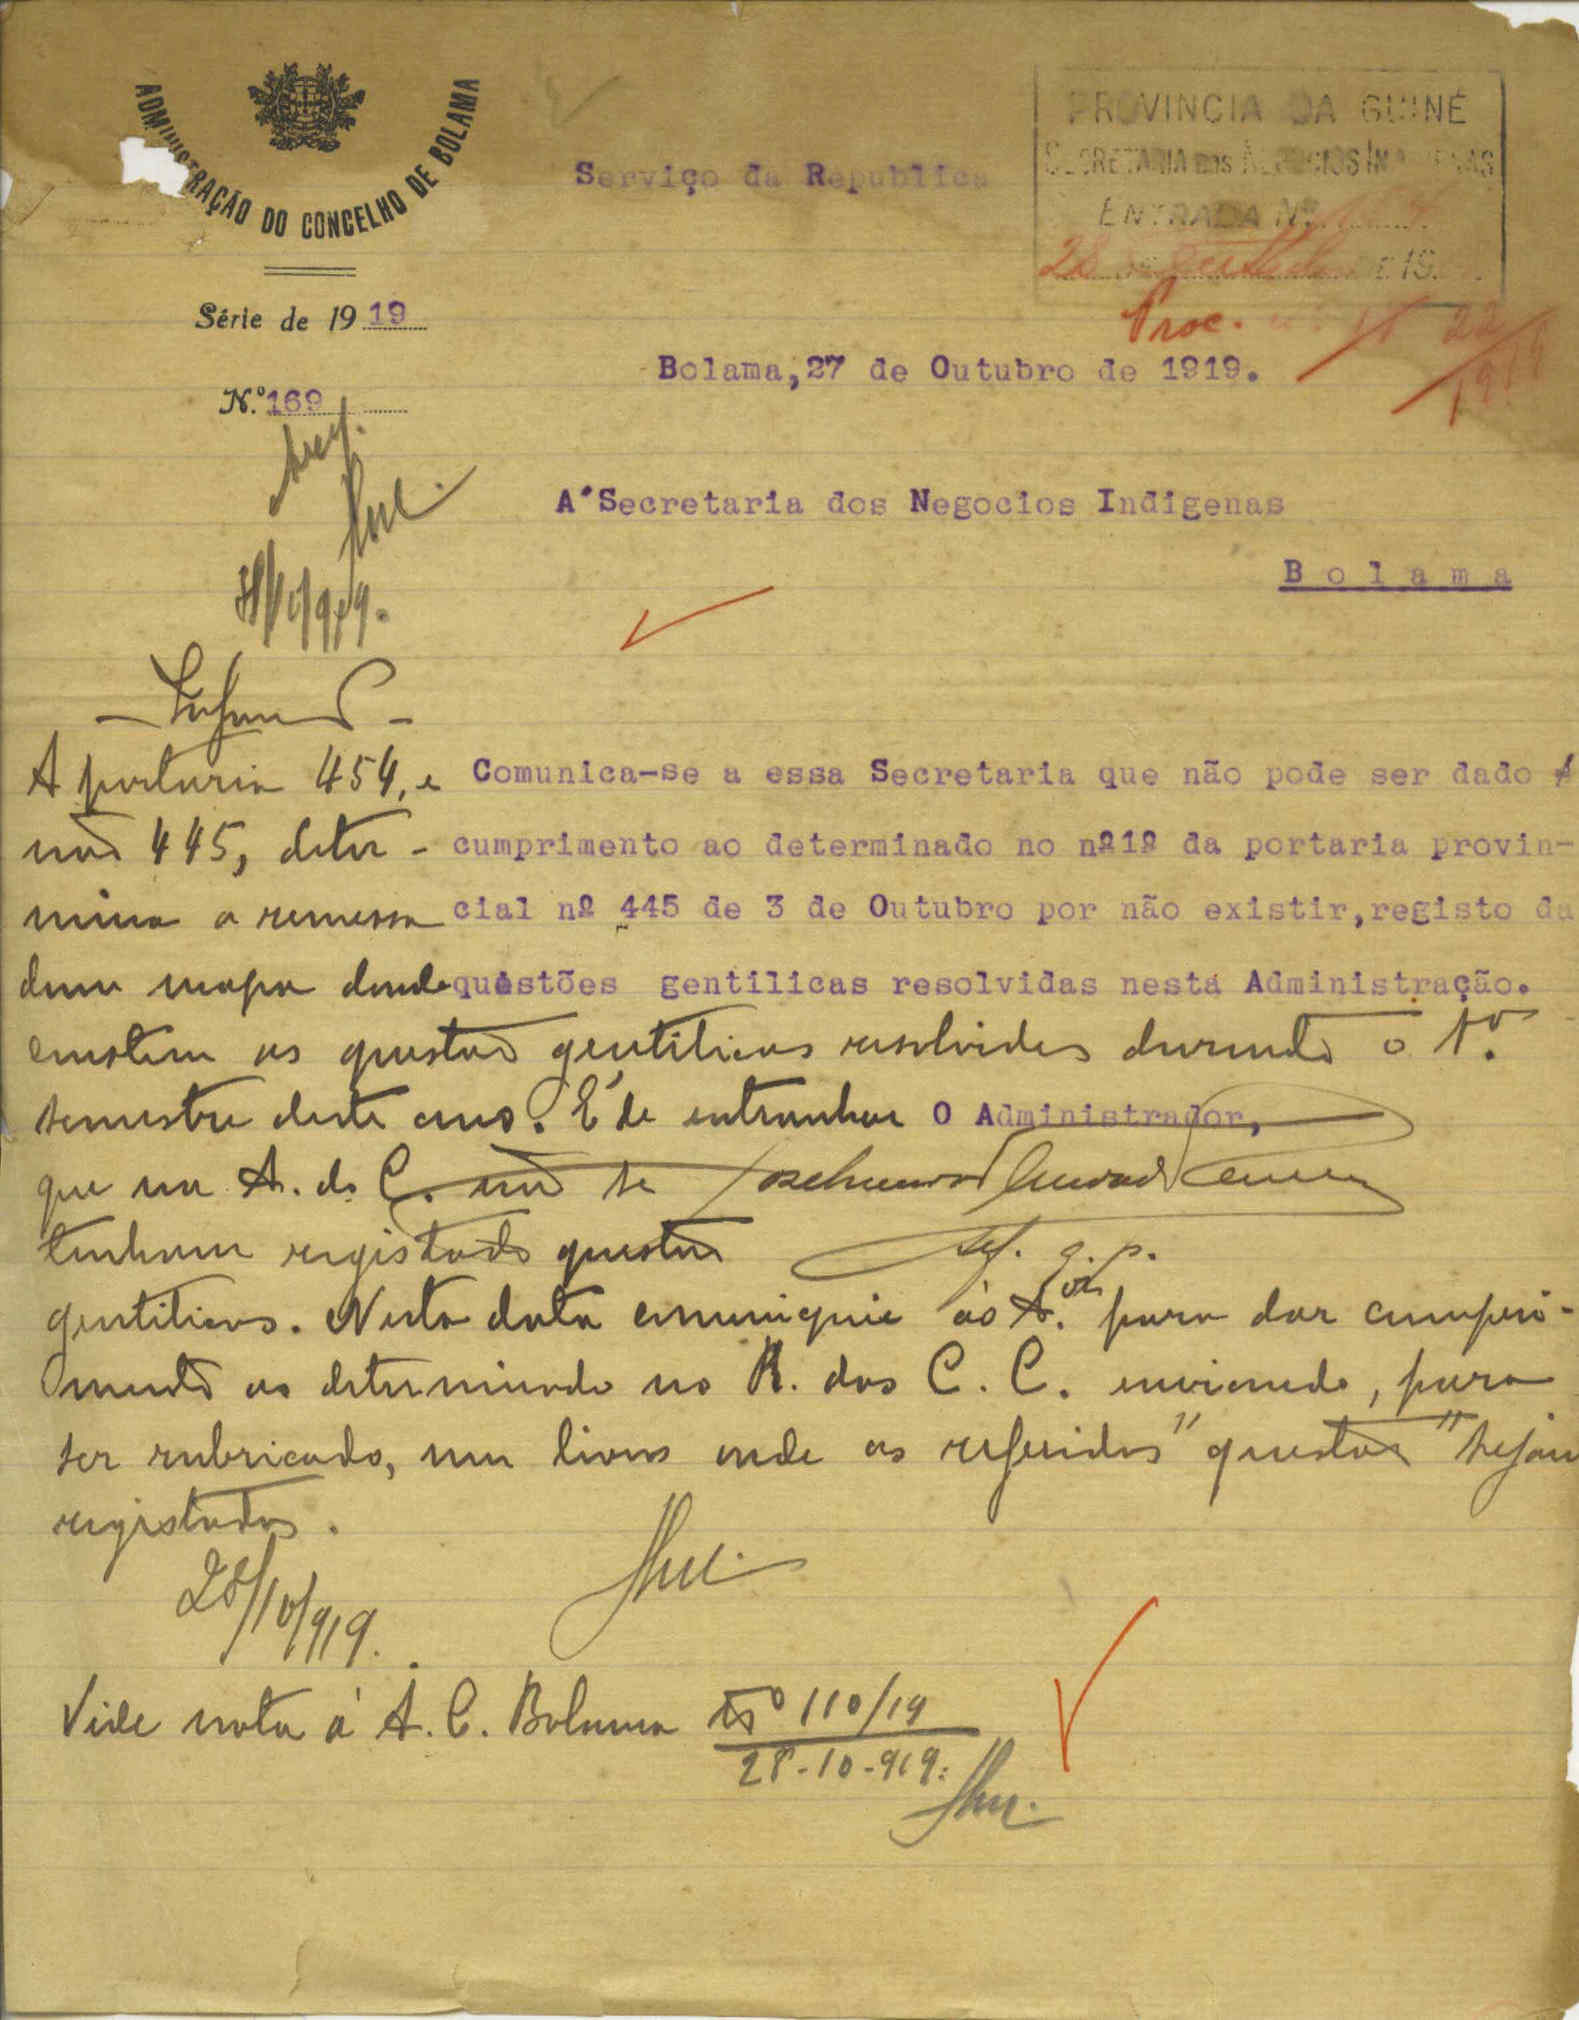 ADMINISTRAÇÃO DO CONCELHO DE BOLAMA
PROVINCIA DA GUINÉ
SECRETARIA DOS NEGOCIOS INDIGENAS
ENTRADA Nº
28 DE Outubro DE 19
Proc. 22
Serviço da Republica
Série de 1919
Bolama,27 de Outubro de 1919.
N.º169
A'Secretaria dos Negocios Indigenas
Bolama
Comunica-se a essa Secretaria que não pode ser dado
cumprimento ao determinado no nº1º da portaria provin-
cial nº 445 de 3 de Outubro por não existir,registo da
questões gentilicas resolvidas nesta Administração.
O Administrador,
int. q. p.
A portaria 454, e
não 445, deter-
mina a remessa
dum mapa donde
constem as questões gentilicas resolvidas durante o 1.º
semestre deste ano. É de extranhar
que na A. do C. não se
tenham registado questões
gentilicas. Nesta data comuniquei ás A.ões para dar cumpri-
mento ao determinado no R. das C. C. enviando, para
ser rubricado, um livro onde as referidas "questões" sejam
registadas.
28/10/919.
Vide nota á A. C. Bolama Nº 110/19
28-10-919.